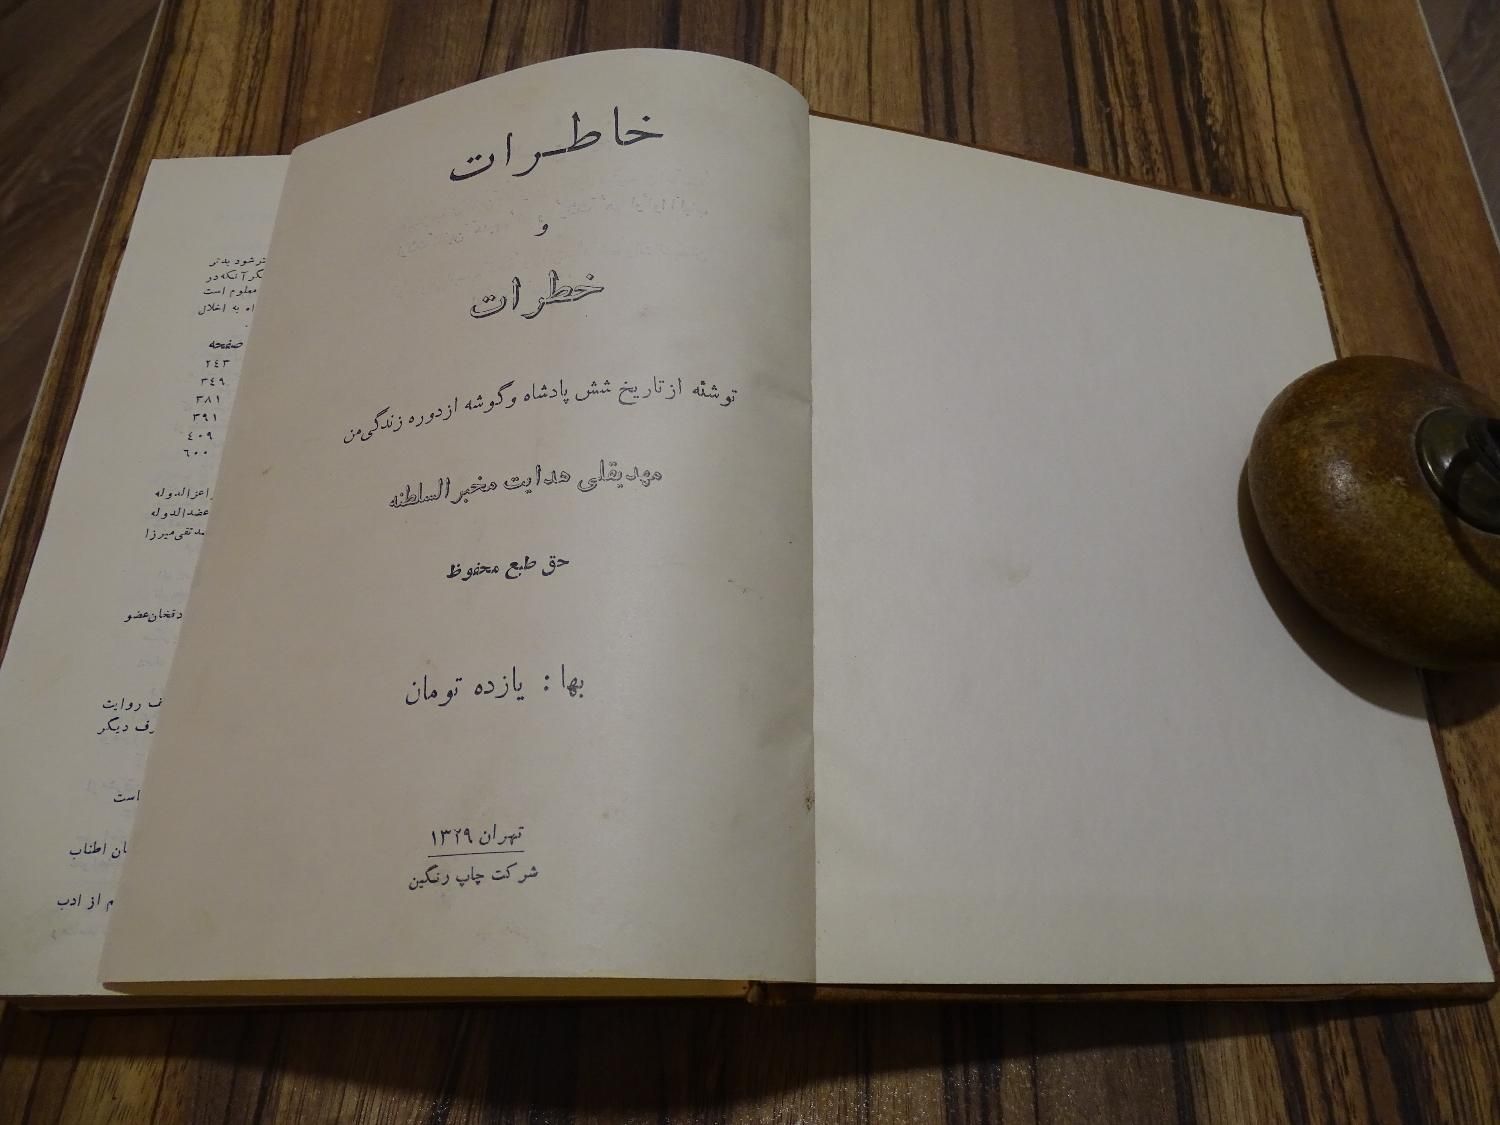 خاطرات
و
خطرات
توشئه از تاریخ شش پادشاه و گوشه از دوره زندگی من
مهدیقلی هدایت مخبرالسلطنه
حق طبع محفوظ
بها: یازده تومان
تهران ۱۳۲۹
شرکت چاپ رنگین
تر شود بدتر
گر آنکه در
معلوم است
اه به اخلال
صفحه
٢٤٣
٣٤٩
٣٨١
٣٩١
٤٠٩
٦٠٠
اعزالدوله
عضدالدوله
مد تقی میرزا
دقخان عضو
ف روایت
رف دیگر
است
ان اطناب
م از ادب